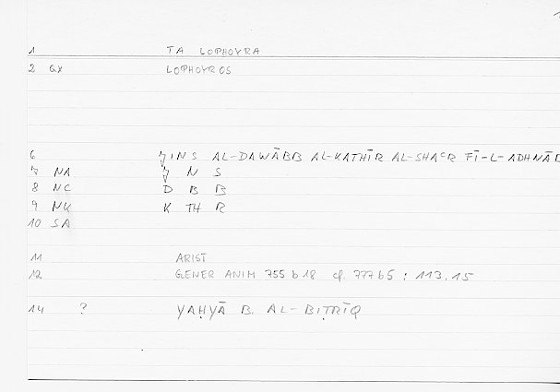 1 TA LOPHOYRA
2 GX LOPHOYROS
6 ǦINS AL-DAWĀBB AL-KATHĪR AL-SHAᶜR FĪ-L-ADHNĀB
7 NA Ǧ N S
8 NC D B B
9 NK K TH R
10 SA
11 ARIST
12 GENER ANIM 755 b 18 cf. 777 b 5 : 113.15
14 ? YAḤYĀ B. AL-BIṬRĪQ